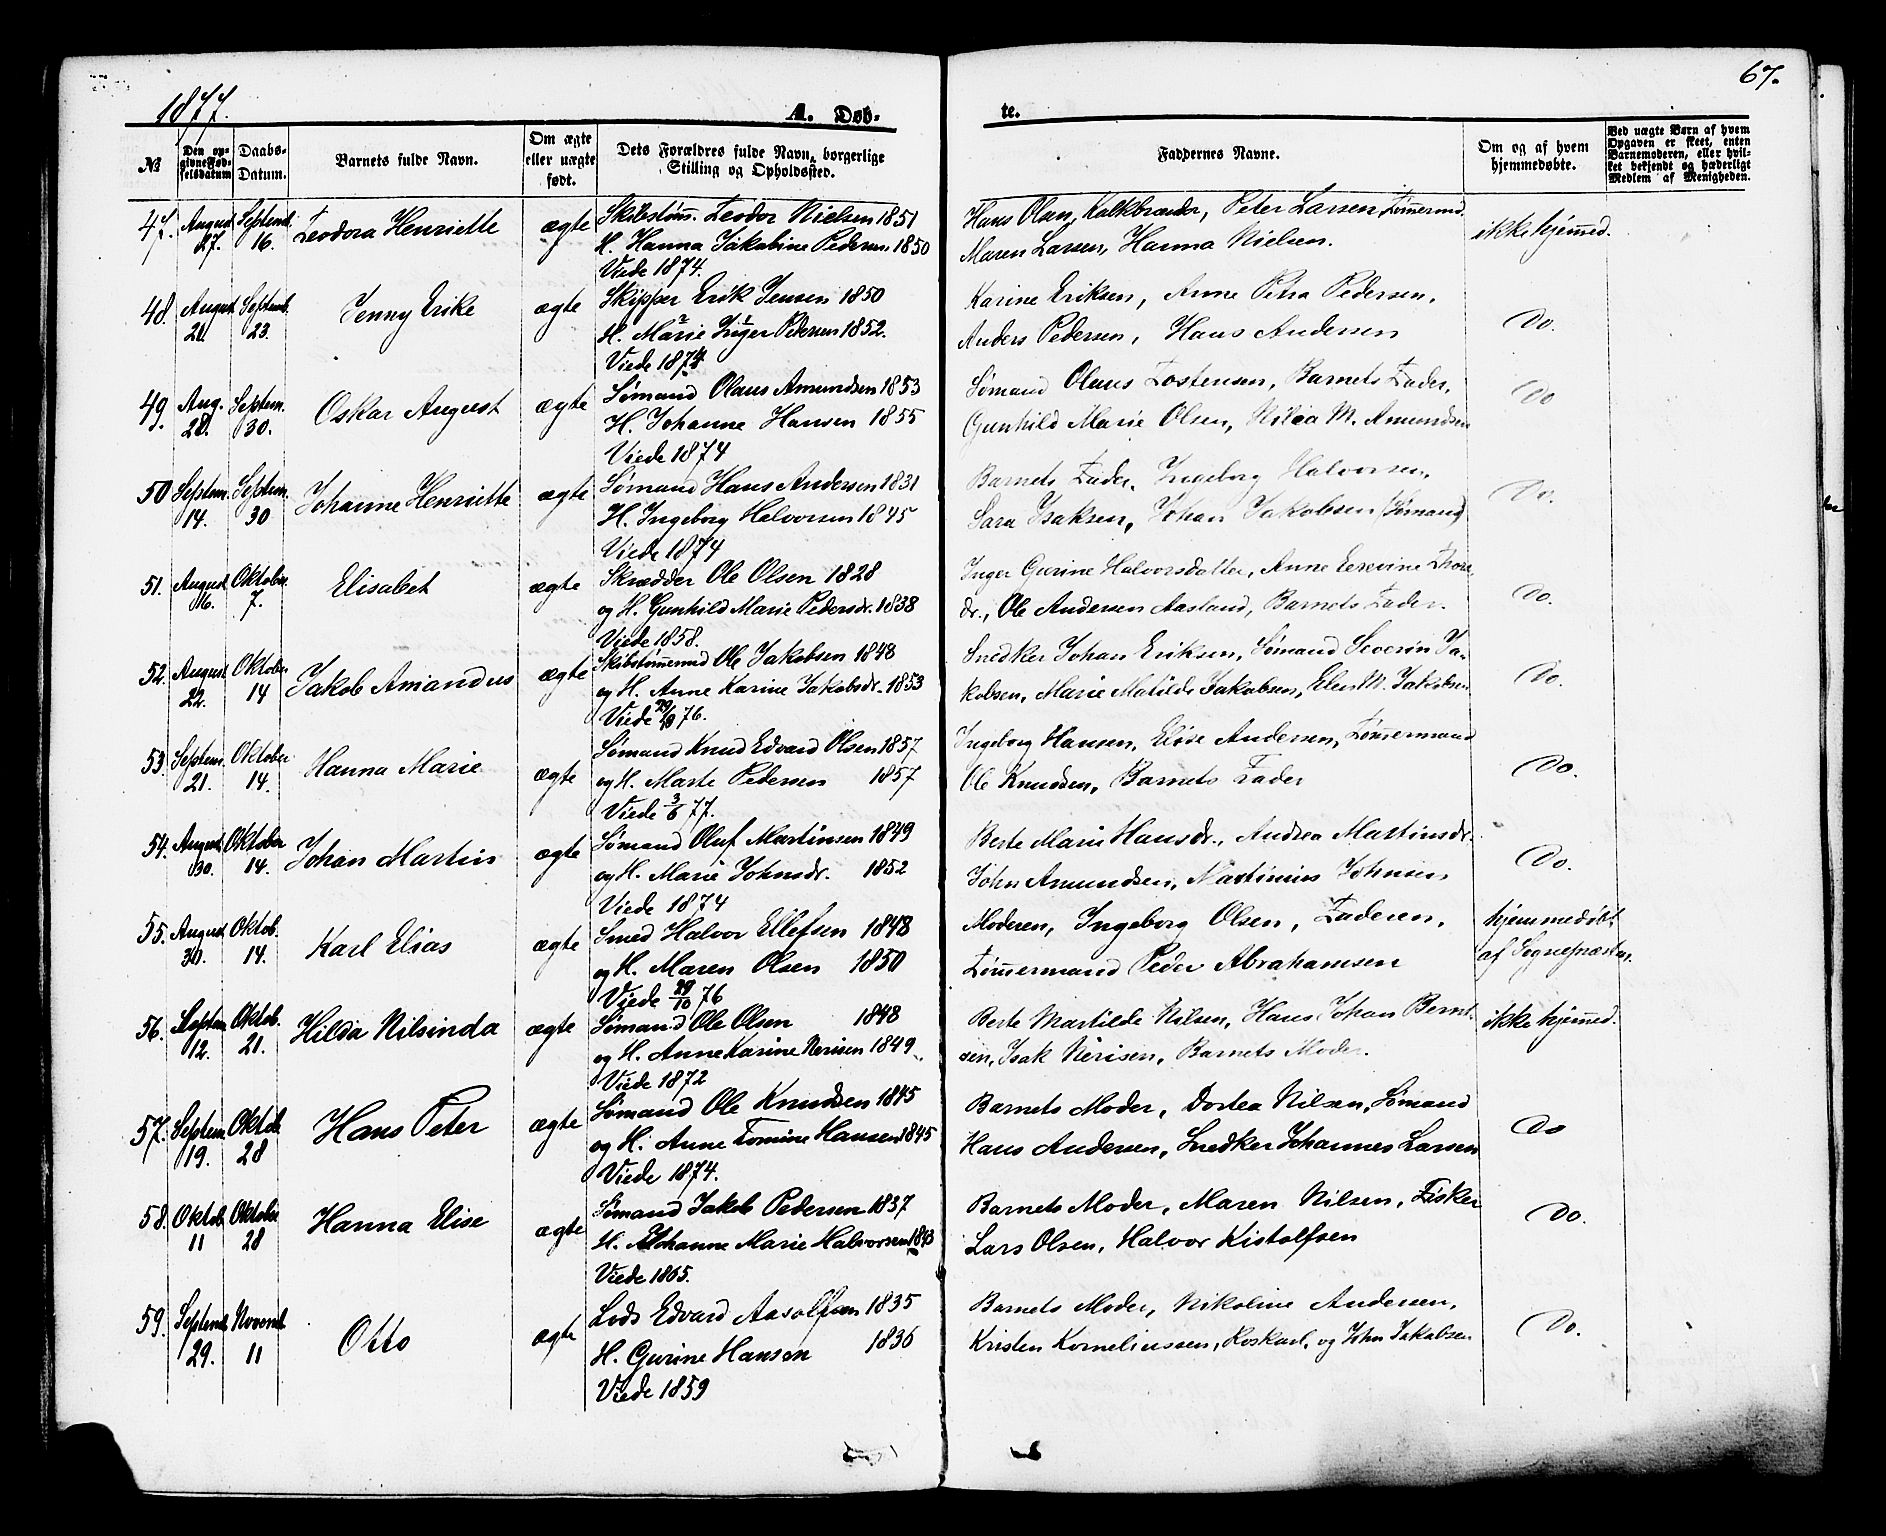 1877.
A. Døb-
te.
67.
№
Den op-givne Fød-selsdatum
Daabs-Datum.
Barnets fulde Navn.
Om ægte eller uægte født.
Dets Forældres fulde Navn, borgerlige Stilling og Opholdssted.
Faddernes Navne.
Om og af hvem hjemmedøbte.
Ved uægte Børn af hvem Opgaven er skeet, enten Barnemoderen, eller hvilket bekjendt og hæderligt Medlem af Menigheden.
47. August 27. Septemb. 16. Teodora Henriette ægte Skibstøm̄. Teodor Nielsen 1851 Hans Olsen, Kalkbrænder, Peter Larsen Tøm̄ermd. ikke hjem̄ed.
H. Hanna Jakobine Pedersen 1850 Maren Larsen, Hanna Nielsen.
Viede 1874.
48. August 21. Septemb. 23. Jenny Erike ægte Skipper Erik Jensen 1850 Karine Eriksen, Anne Petra Pedersen, Do.
H. Marie Inger Pedersen 1852. Anders Pedersen, Hans Andersen
Viede 1874
49. Aug. 28. Septem. 30. Oskar August ægte Sømand Olaus Amundsen 1853 Sømand Olaus Tostensen, Barnets Fader, Do
H. Johanne Hansen 1855 Gunhild Marie Olsen, M. Amundsen
Viede 1874
50 Septem. 14. Septem. 30 Johanne Henriette ægte Sømand Hans Andersen 1831 Barnets Fader, Ingeborg Halvorsen, Do.
H. Ingeborg Halvorsen 1845 Sara Isaksen, Johan Jakobsen (Sømand)
Viede 1874
51. August 16. Oktober 7. Elisabet ægte Skrædder Ole Olsen 1828 Inger Gurine Halvorsdatter, Anne Do.
og H. Gunhild Marie Pedersdr. 1838 dr., Ole Andersen Aasland, Barnets Fader.
Viede 1858.
52. August 22. Oktober 14 Jakob Amandus ægte Skibstøm̄ermd Ole Jakobsen 1848 Snedker Johan Eriksen, Sømand Severin Ja- Do.
og H. Anne Karine Jakobsdr. 1853 kobsen, Marie Matilde Jakobsen, Elen M. Jakobsen
Viede 76.
53. Septem. 21. Oktober 14. Hanna Marie ægte Sømand Knud Edvard Olsen 1857 Ingeborg Hansen, Elise Andersen, Tøm̄ermand Do.
og H. Marte Pedersen 1857 Ole Knudsen, Barnets Fader
Viede 3/6 77.
54. August 30. Oktober 14. Johan Martin ægte Sømand Oluf Martinsen 1849 Berte Marie Hansdr., Andrea Martinsdr. Do.
og H. Marie Johnsdr. 1852 John Amundsen, Martinius Johnsen
Viede 1874
55. August 30. Oktob. 14. Karl Elias ægte Smed Halvor Ellefsen 1848 Moderen, Ingeborg Olsen, Faderen, hjemmedøbt
og H. Maren Olsen 1850 Tøm̄ermand Peder Abrahamsen af Sognepræsten.
Viede 29/10 76
56. Septem 12. Oktob. 21. Hilda Nilsinda ægte Sømand Ole Olsen 1848 Berte Martilde Nilsen, Hans Johan Bernt- ikke hjem̄ed.
og H. Anne Karine Nerisen 1849. sen, Isak Nerisen, Barnets Moder.
Viede 1872
57. Septem 19. Oktob 28 Hans Peter ægte Sømand Ole Knudsen 1845 Barnets Moder, Dortea Nilsen, Sømand Do
og H. Anne Tomine Hansen 1845 Hans Andersen, Snedker Johannes Larsen
Viede 1874.
58. Oktob 11 Oktober 28 Hanna Elise ægte Sømand Jakob Pedersen 1837 Barnets Moder, Maren Nilsen, Fisker Do.
H. Johanne Marie Halvorsen 1843 Lars Olsen, Halvor Kistolfsen
Viede 1865.
59. Septemb 29. Novemb 11 Otto ægte Lods Edvard Aasolfsen 1835 Barnets Moder, Nikoline Andersen, Do.
H. Gurine Hansen 1836 Kristen Korneliussen, Roskarl, og John Jakobsen
Viede 1859